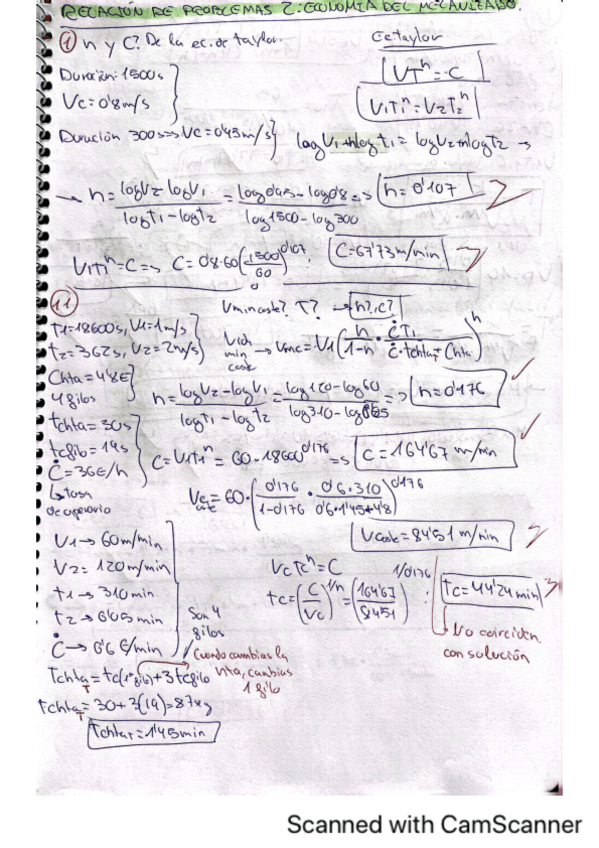 RELACIÓN DE PROBLEMAS 2: ECONOMÍA DEL MECANIZADO.
① n y C? De la ec. de taylor.
Ec taylor
VTⁿ = C
V1T1ⁿ = V2T2ⁿ
Duración: 1500s
Vc = 0'8 m/s
Duración 300s => Vc = 0'95 m/s
log V1 + n log t1 = log V2 + n log t2 →
→ n = (log V2 - log V1)/(log t1 - log t2) = (log 0'95 - log 0'8)/(log 1500 - log 300) => n = 0'107
V1T1ⁿ = C => C = 0'8·60(1500/60)^0'107 : C = 67'73 m/min
⑪
Vmin coste? T? → n?, c?
t1 = 18600s, V1 = 1m/s
t2 = 362s, V2 = 2m/s
Vch min coste → Vmc = V1(n/(1-n) · ĊT1/(Ċ·tchta + Chta))ⁿ
Chta = 4'8€
4 filos
n = (log V2 - log V1)/(log t1 - log t2) = (log 120 - log 60)/(log 310 - log 6'05) => n = 0'176
tchta = 30s
tcfilo = 19s
Ċ = 36€/h
↳ tasa de operario
C = V1T1ⁿ = 60·18600^0'176 => C = 164'67 m/min
Vc coste = 60·(0'176/(1-0'176) · 0'6·310/(0'6·1'45+4'8))^0'176
Vcoste = 84'51 m/min
V1 → 60 m/min
V2 = 120 m/min
t1 → 310 min
t2 → 6'05 min
Ċ → 0'6 €/min
Son 4 filos
VcTcⁿ = C
tc = (C/Vc)^1/n = (164'67/84'51)^1/0'176 : tc = 44'24 min
No coinciden
con solución
Cuando cambias la
hta, cambias
1 filo
Tchta T = tc(1ºfilo) + 3tcfilo
tchta T = 30 + 3(19) = 87 seg
tchta T = 1'45 min
Scanned with CamScanner